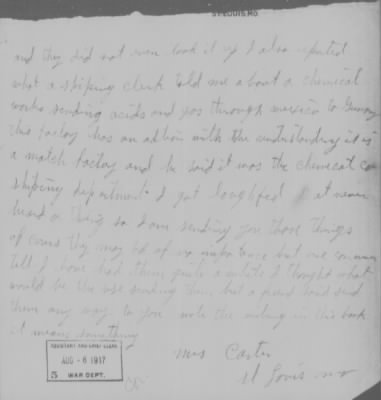 ST. LOUIS, MO.
and they did not even look it up I also reported
what a shiping clerk told me about a chemical
works sending acids and gas through mexico to Germany
this factoy has an adtion with the understanding it is
a match factoy and he said it was the chemical Co
shiping department I got laughfed at never
heard a thing so I am sending you those things
of corse thy may be of no importance but one can never
tell I have had them quite a while I thought what
would be the use sending them but a friend said send
them any way to you note the writing in this book
it means something
Mrs Carter
St Louis mo
ASSISTANT AND CHIEF CLERK
AUG -6 1917
5 WAR DEPT.